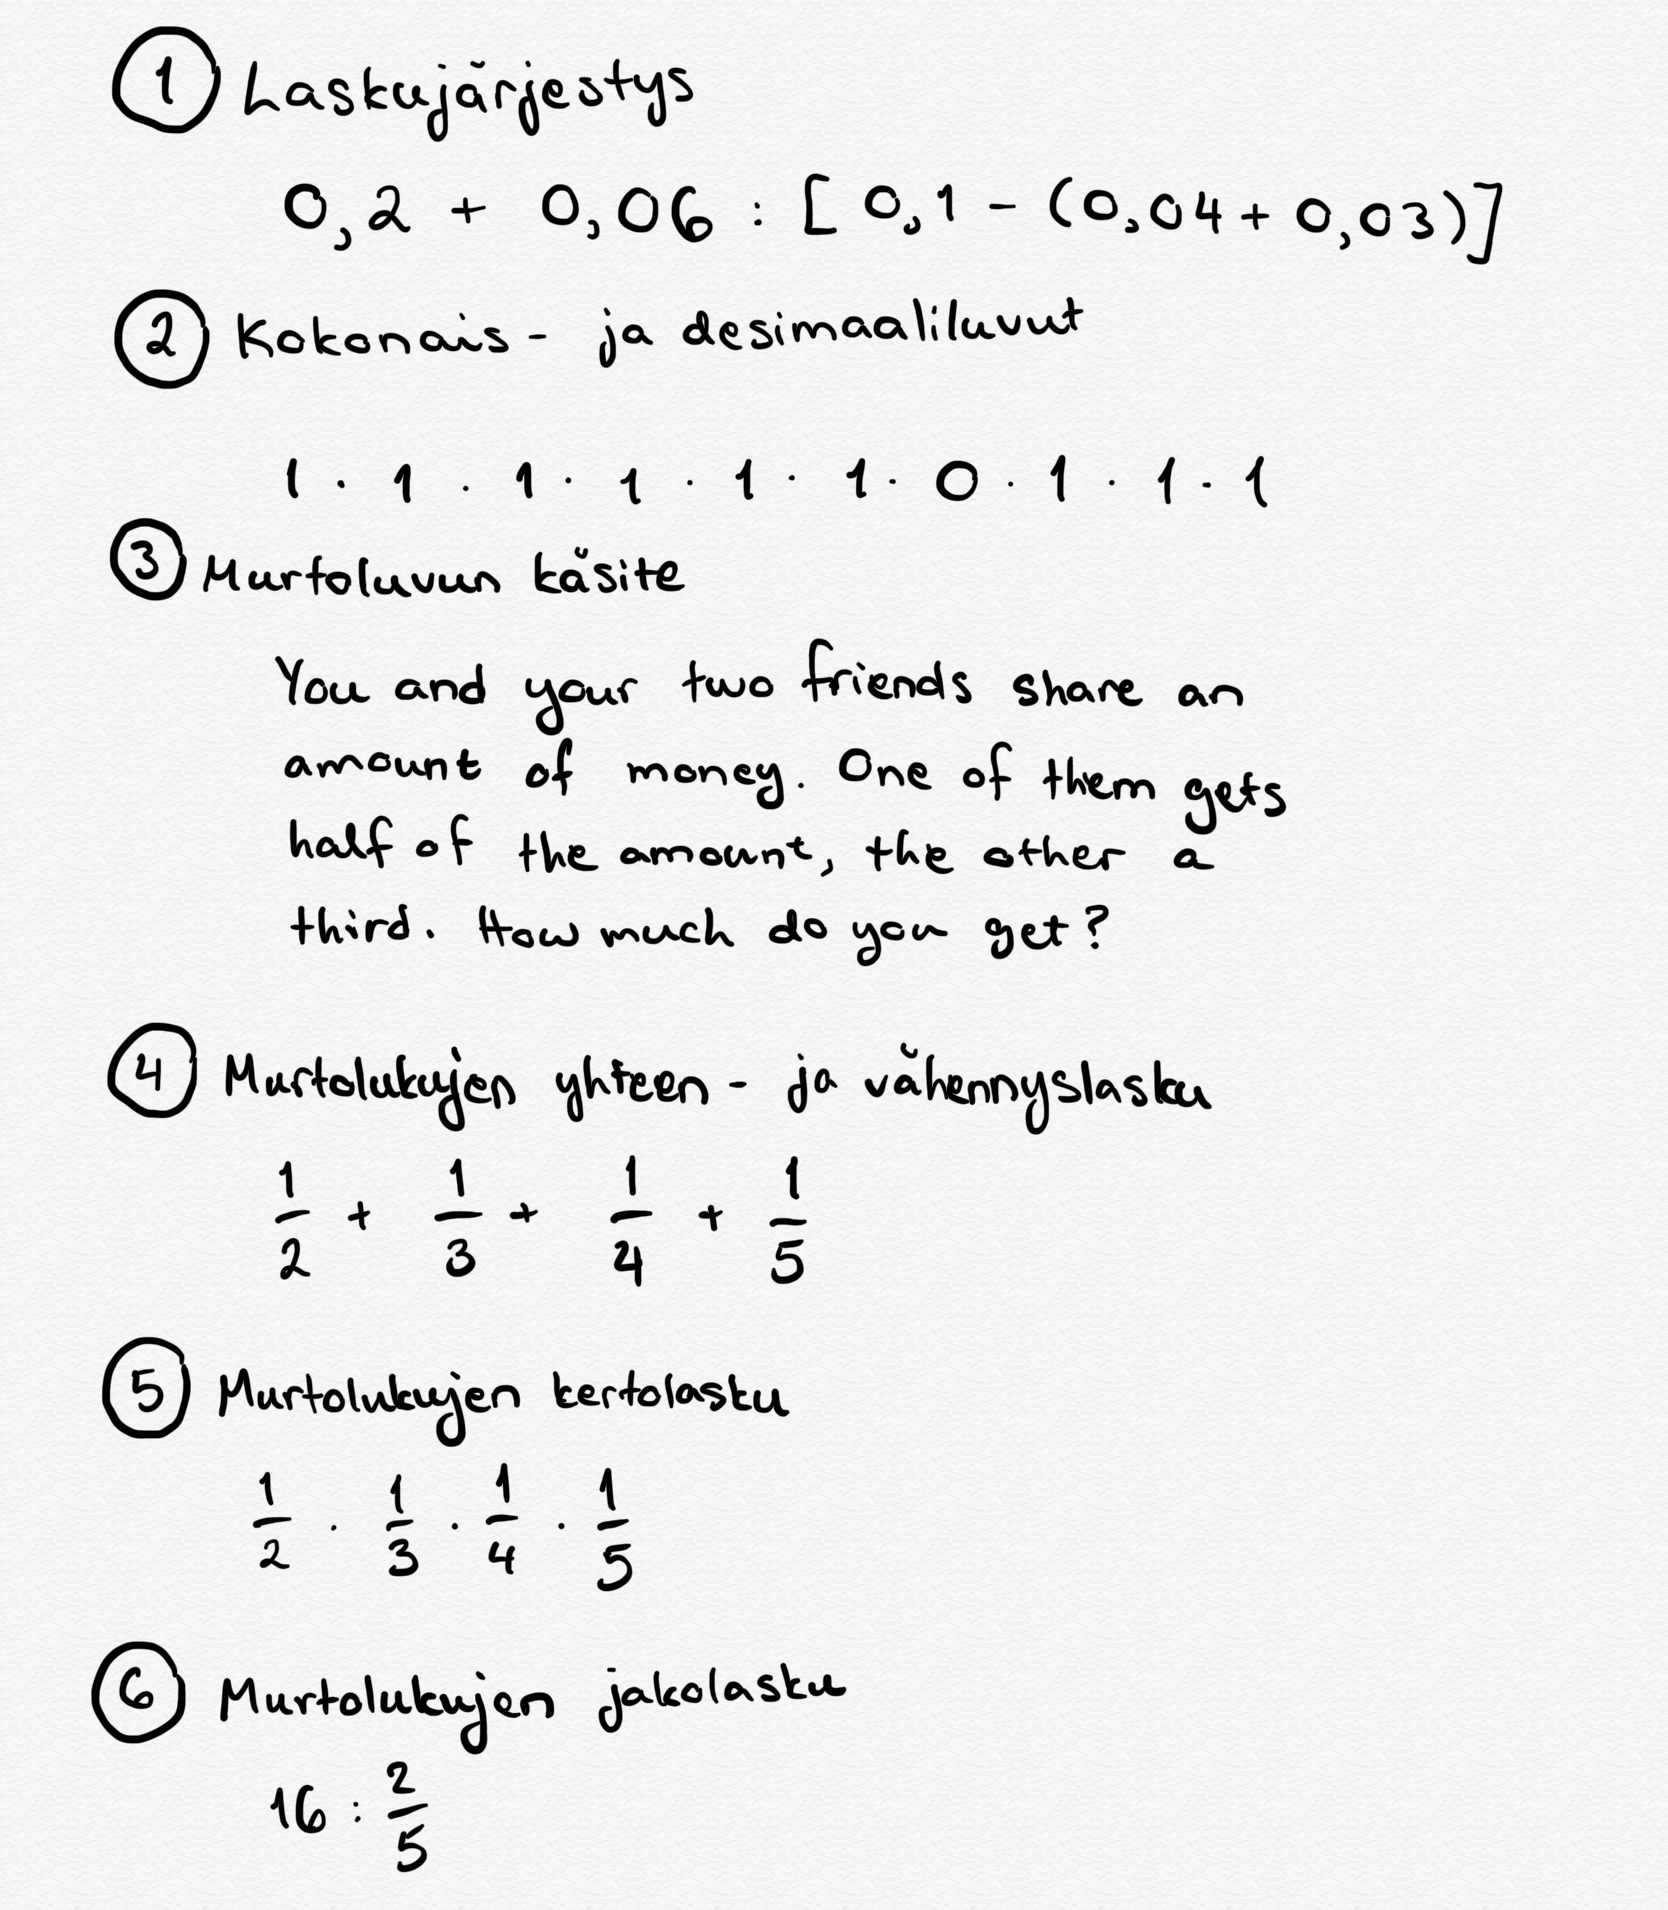 1 Laskujärjestys
0,2 + 0,06 : [ 0,1 - (0,04 + 0,03)]
2 Kokonais- ja desimaaliluvut
1 · 1 · 1 · 1 · 1 · 1 · 0 · 1 · 1 · 1
3 Murtoluvun käsite
You and your two friends share an
amount of money. One of them gets
half of the amount, the other a
third. How much do you get?
4 Murtolukujen yhteen- ja vähennyslasku
1/2 + 1/3 + 1/4 + 1/5
5 Murtolukujen kertolasku
1/2 · 1/3 · 1/4 · 1/5
6 Murtolukujen jakolasku
16 : 2/5